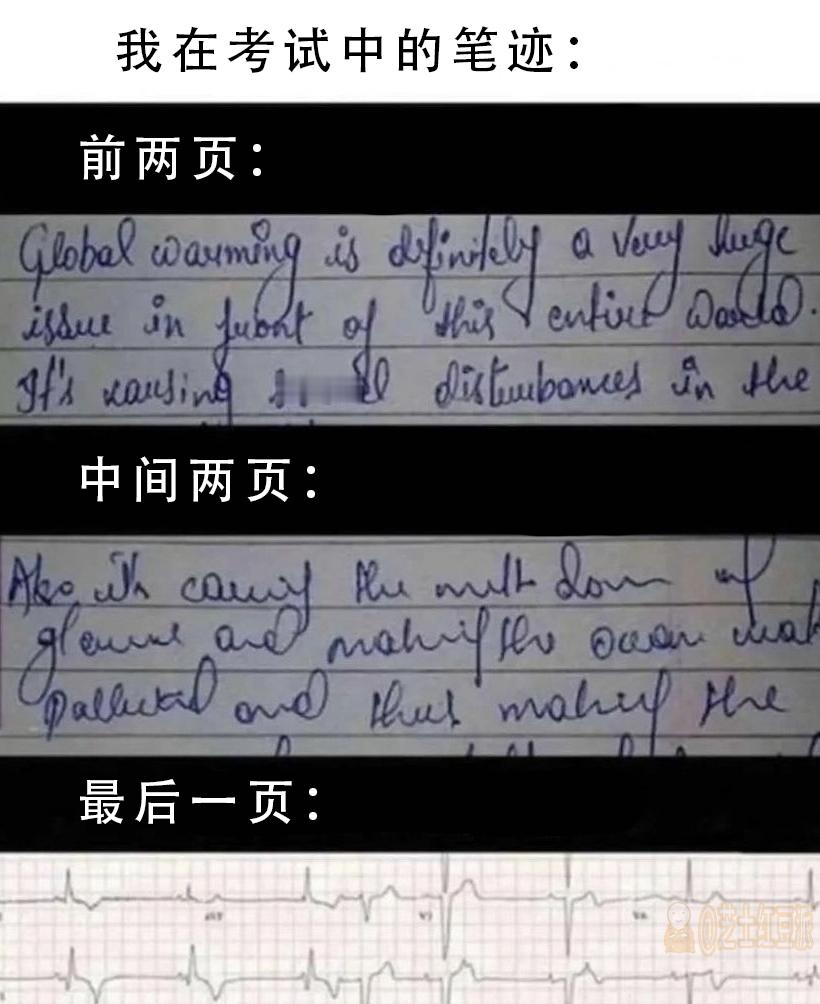 我在考试中的笔迹：
前两页：
Global warming is definitely a very huge
issue in front of this entire world.
It's causing disturbances in the
中间两页：
Also it's causing the melt down of
and making the ocean
polluted and thus making the
最后一页：
aVF V1
@艺士红豆东